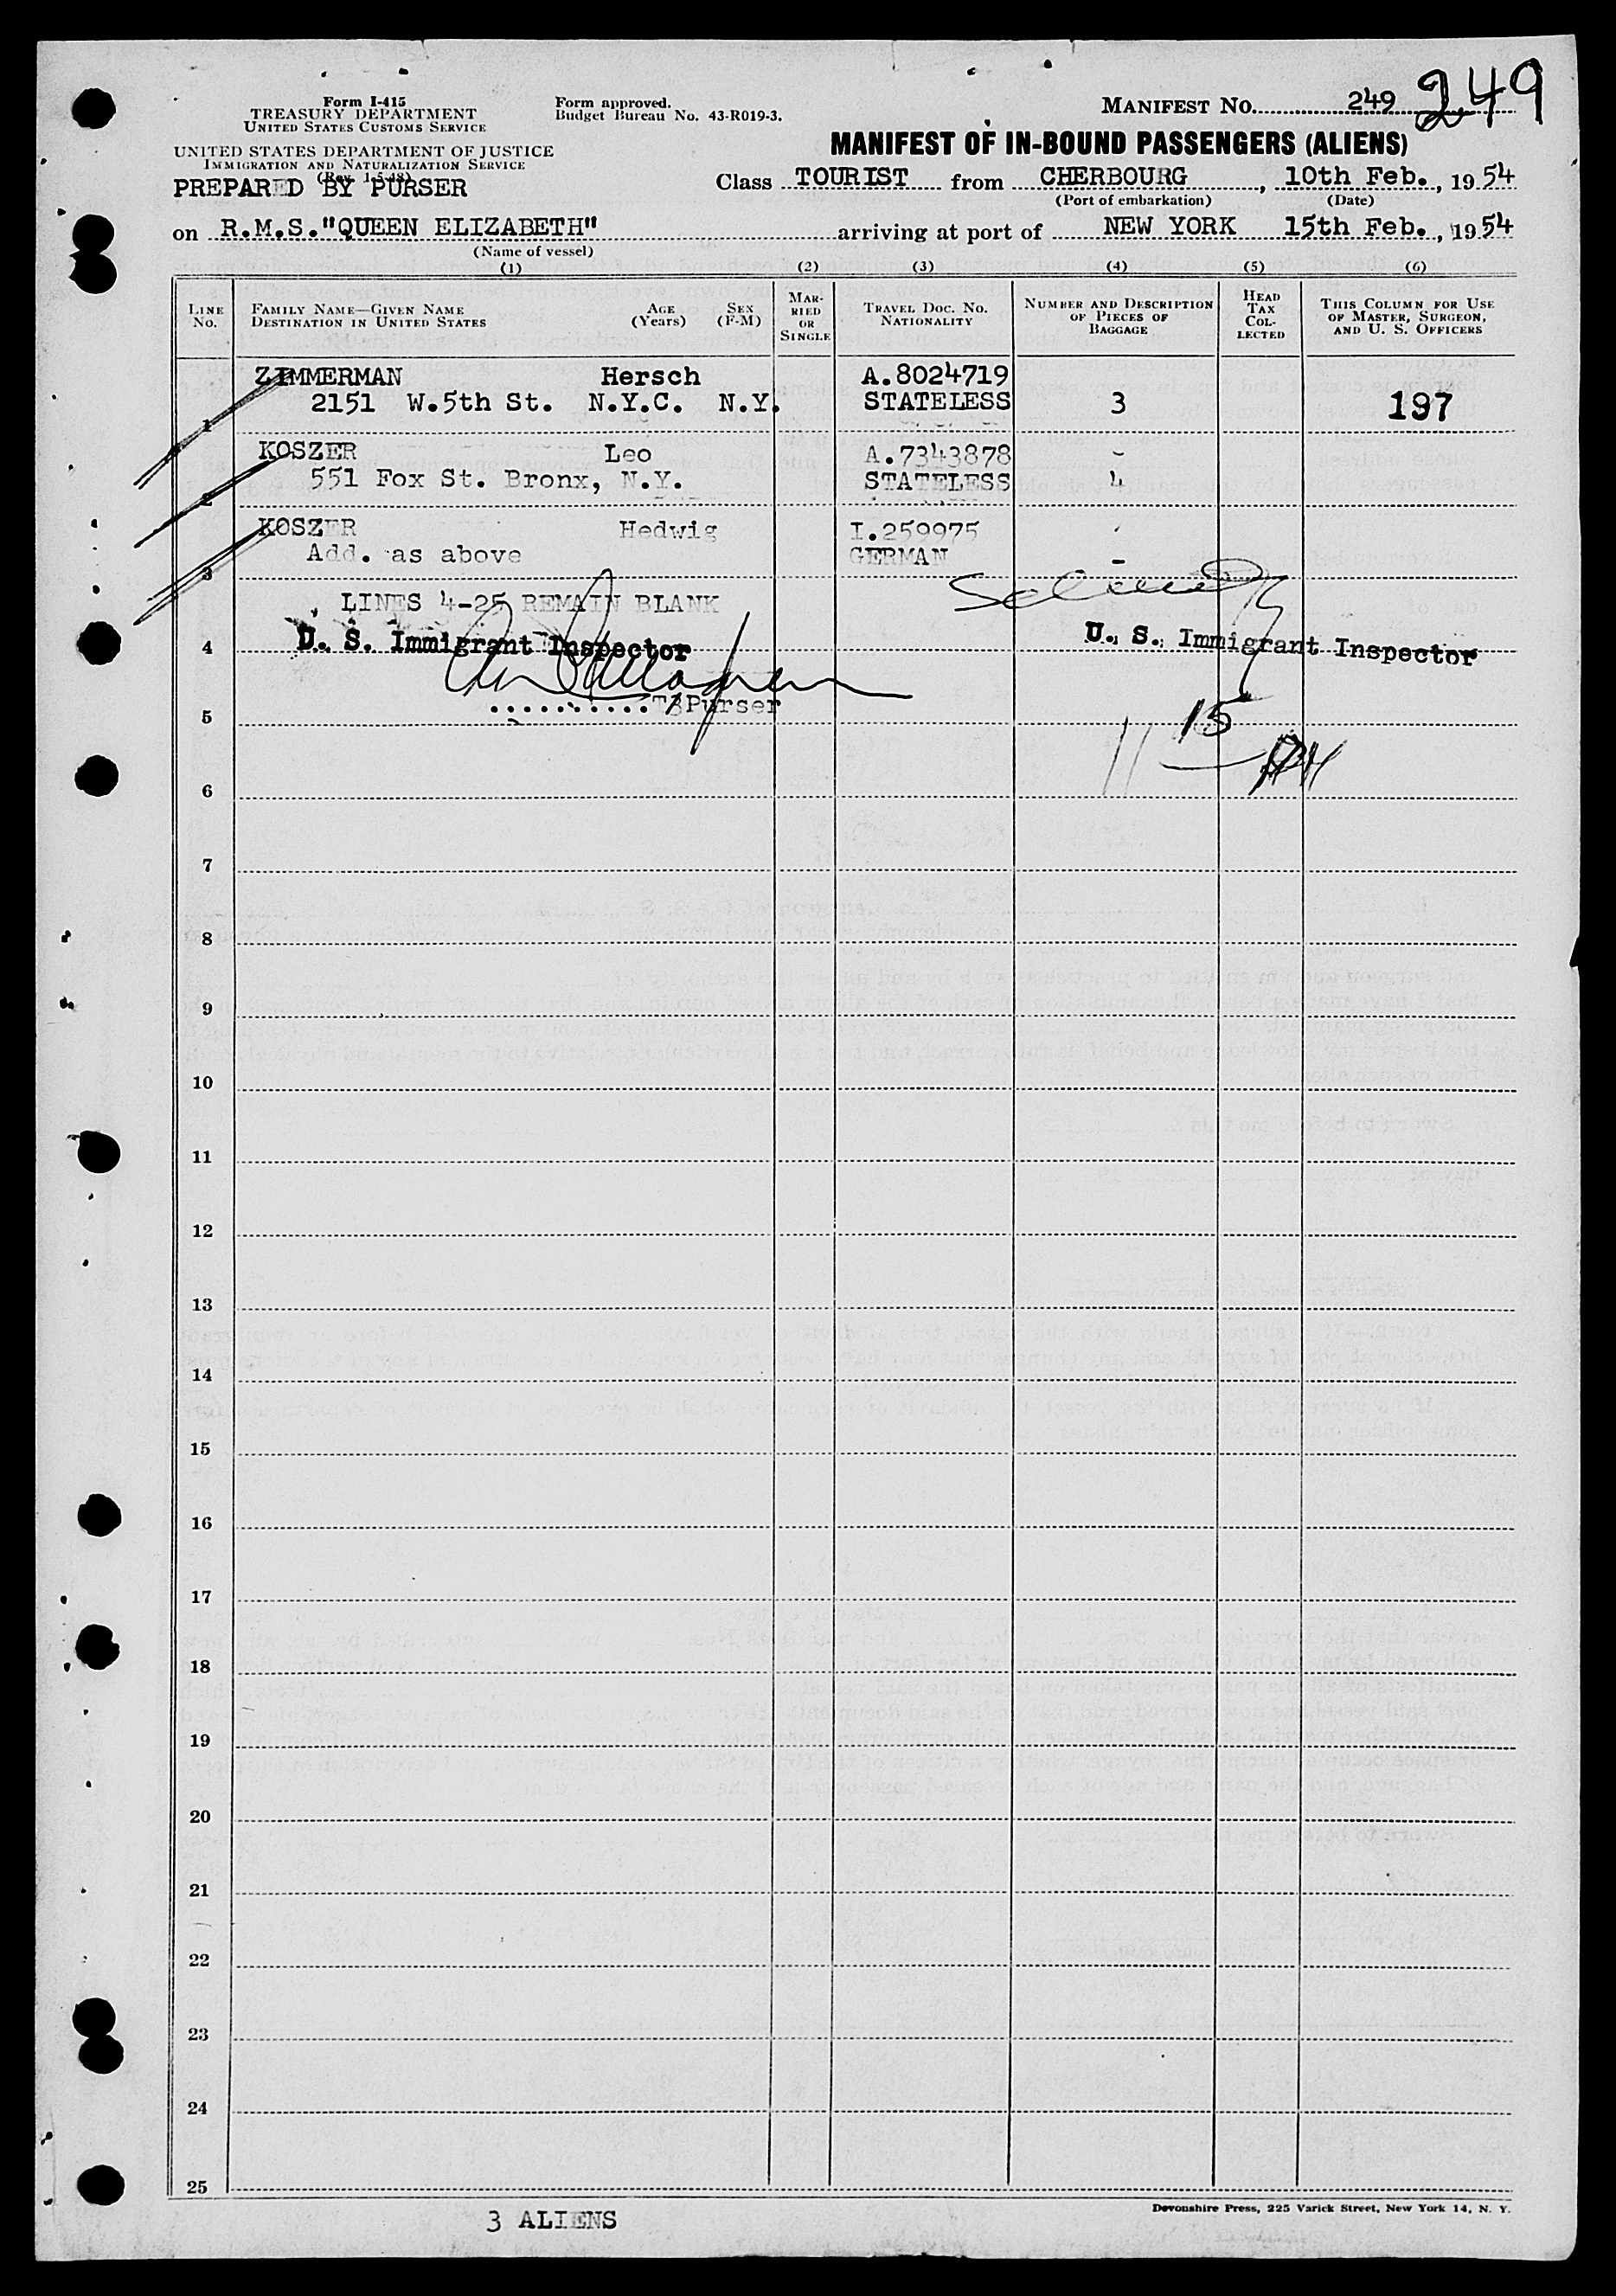 Form I-415
TREASURY DEPARTMENT
UNITED STATES CUSTOMS SERVICE
UNITED STATES DEPARTMENT OF JUSTICE
IMMIGRATION AND NATURALIZATION SERVICE
(Rev. 1-5-48)
PREPARED BY PURSER
Form approved.
Budget Bureau No. 43-R019-3.
MANIFEST NO. 249 249
MANIFEST OF IN-BOUND PASSENGERS (ALIENS)
Class TOURIST from CHERBOURG, 10th Feb., 1954
(Port of embarkation) (Date)
on R.M.S."QUEEN ELIZABETH" arriving at port of NEW YORK 15th Feb., 1954
(Name of vessel)
(1) (2) (3) (4) (5) (6)
LINE NO.
FAMILY NAME—GIVEN NAME
DESTINATION IN UNITED STATES
AGE (Years)
SEX (F-M)
MARRIED OR SINGLE
TRAVEL DOC. NO.
NATIONALITY
NUMBER AND DESCRIPTION OF PIECES OF BAGGAGE
HEAD TAX COLLECTED
THIS COLUMN FOR USE OF MASTER, SURGEON, AND U. S. OFFICERS
ZIMMERMAN Hersch A.8024719
1 2151 W.5th St. N.Y.C. N.Y. STATELESS 3 197
KOSZER Leo A.7343878 -
2 551 Fox St. Bronx, N.Y. STATELESS 4
KOSZER Hedwig I.259975
3 Add. as above GERMAN -
LINES 4-25 REMAIN BLANK
4 U. S. Immigrant Inspector U. S. Immigrant Inspector
5 Purser
15
6
7
8
9
10
11
12
13
14
15
16
17
18
19
20
21
22
23
24
25
3 ALIENS
Devonshire Press, 225 Varick Street, New York 14, N. Y.